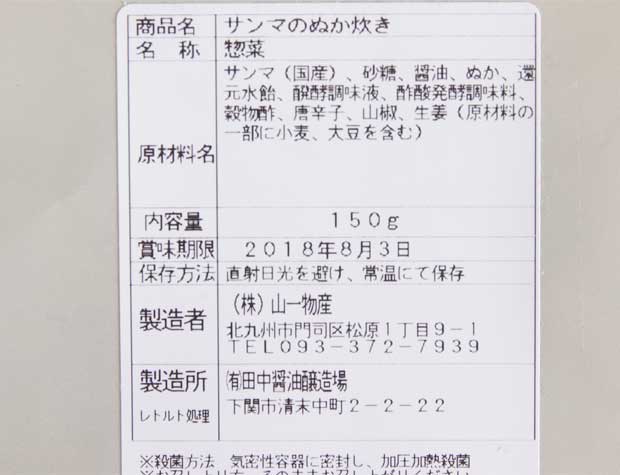 商品名 サンマのぬか炊き
名称 惣菜
原材料名 サンマ（国産）、砂糖、醤油、ぬか、還
元水飴、醗酵調味液、酢酸発酵調味料、
穀物酢、唐辛子、山椒、生姜（原材料の
一部に小麦、大豆を含む）
内容量 150g
賞味期限 2018年8月3日
保存方法 直射日光を避け、常温にて保存
製造者 （株）山一物産
北九州市門司区松原1丁目9－1
TEL093－372－7939
製造所 ㈲田中醤油醸造場
レトルト処理 下関市清末中町2－2－22
※殺菌方法 気密性容器に密封し、加圧加熱殺菌